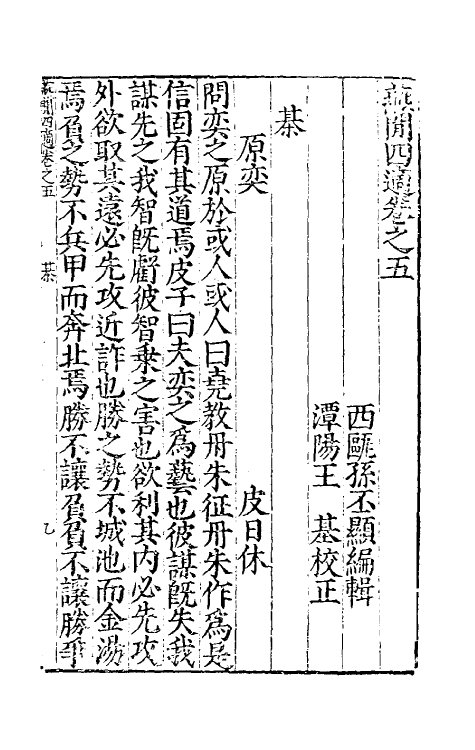 燕閒四適卷之五
西甌孫丕顯編輯
潭陽王　基校正
棊
原奕　皮日休
問奕之原於或人或人曰堯教丹朱征丹朱作爲是
信固有其道焉皮子曰夫奕之爲藝也彼謀旣失我
謀先之我智旣虧彼智乗之害也欲利其内必先攻
外欲取其遠必先攻近詐也勝之勢不城池而金湯
焉負之勢不兵甲而奔北焉勝不讓負負不讓勝爭
燕閒四適卷之五　棊　乙